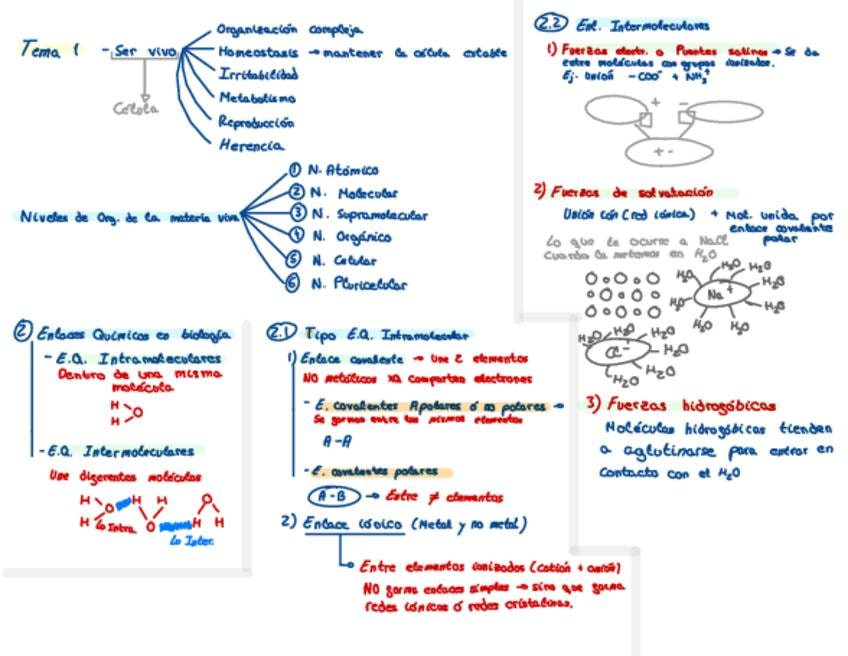 Tema 1 - Ser vivo
Célula
Organización compleja
Homeostasis → mantener la célula estable
Irritabilidad
Metabolismo
Reproducción
Herencia
Niveles de Org. de la materia viva
① N. Atómico
② N. Molecular
③ N. Supramolecular
④ N. Orgánico
⑤ N. Celular
⑥ N. Pluricelular
② Enlaces Químicos en biología
- E.Q. Intramoleculares
Dentro de una misma
molécula
H
O
H
- E.Q. Intermoleculares
Une diferentes moléculas
H O H H O
H Lo Intra. O H H
Lo Inter.
2.1 Tipo E.Q. Intramolecular
1) Enlace covalente → Une 2 elementos
NO metálicos xq comparten electrones
- E. covalentes Apolares ó no polares →
Se forman entre los mismos elementos
A-A
- E. covalentes polares
A-B → Entre ≠ elementos
2) Enlace iónico (Metal y no metal)
Entre elementos ionizados (catión + anión)
NO forma enlaces simples → sino que forma
redes iónicas ó redes cristalinas.
2.2 Enl. Intermoleculares
1) Fuerzas electr. o Puentes salinos → Se da
entre moléculas con grupos ionizados.
Ej. Unión -COO⁻ + NH₃⁺
+ -
+ -
2) Fuerzas de solvatación
Unión ión (red iónica) + Mol. unida por
enlace covalente
polar
Lo que le ocurre a NaCl
cuando la metemos en H₂O
H₂O H₂O H₂O
H₂O Na⁺ H₂O
H₂O H₂O H₂O
H₂O H₂O H₂O
Cl⁻ H₂O
H₂O H₂O
3) Fuerzas hidrofóbicas
Moléculas hidrofóbicas tienden
a aglutinarse para entrar en
contacto con el H₂O